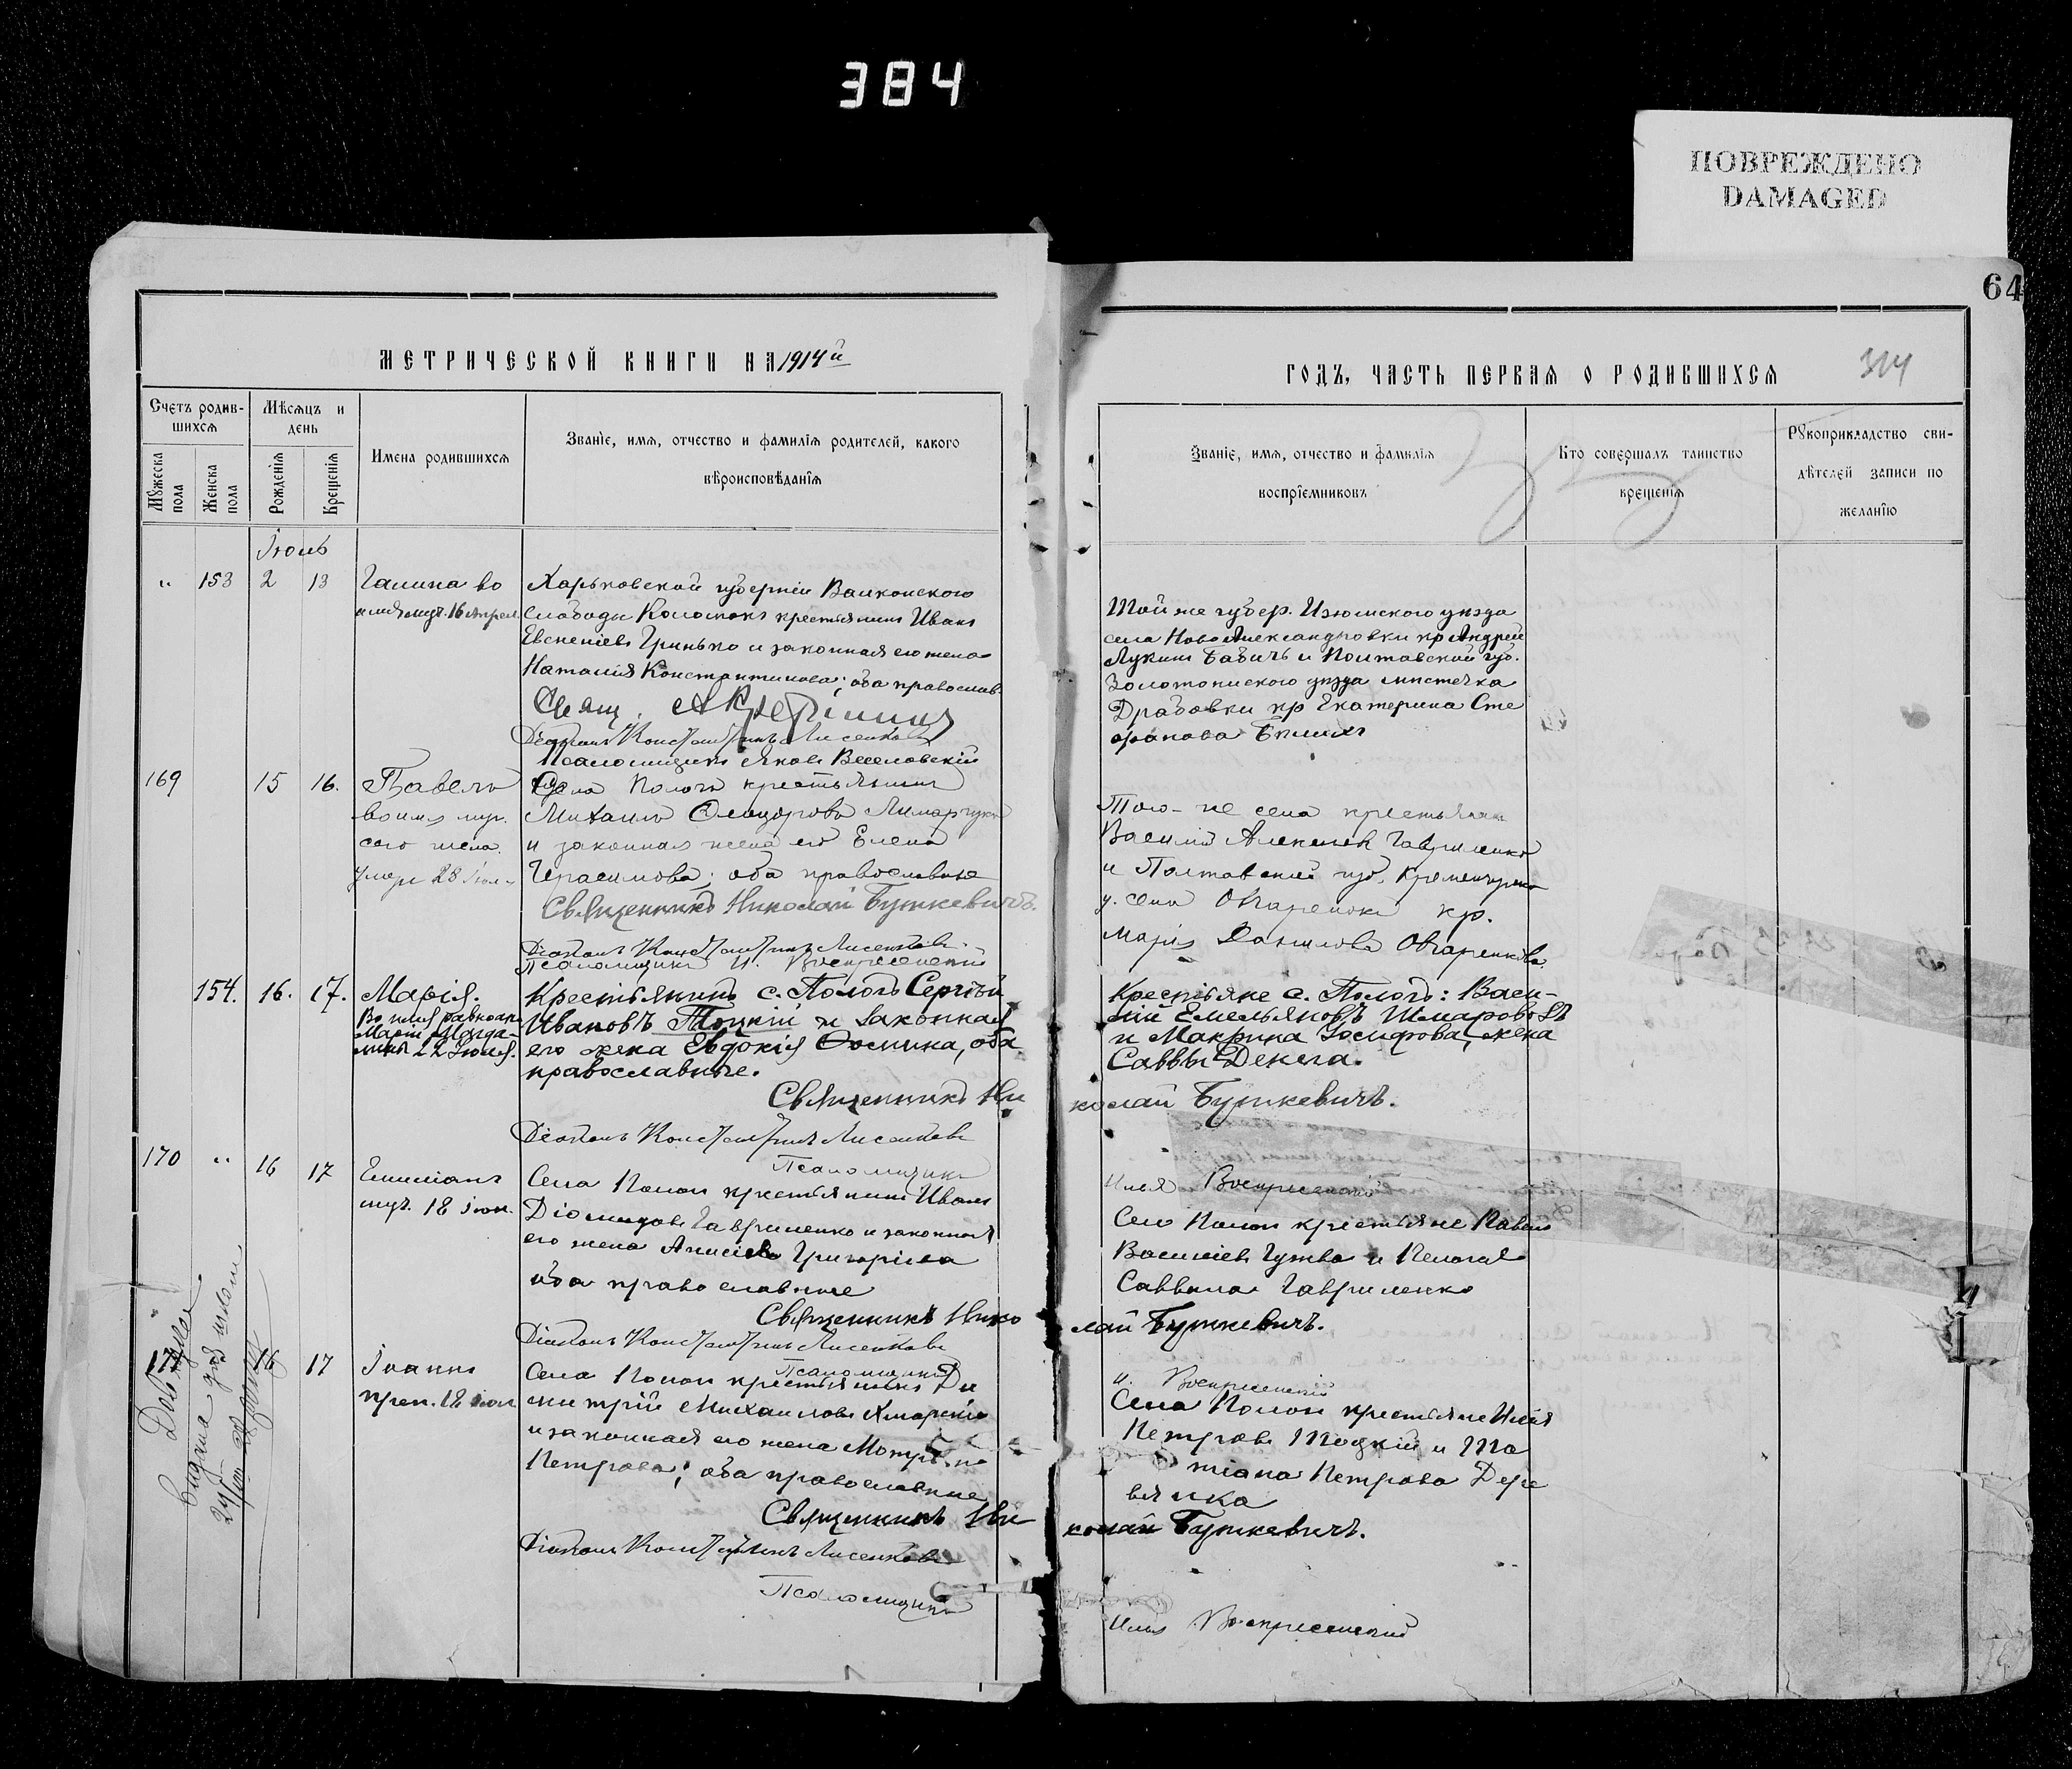 384
ПОВРЕЖДЕНО
DAMAGED
64
МЕТРИЧЕСКОЙ КНИГИ НА 1914й
ГОДЪ, ЧАСТЬ ПЕРВАЯ О РОДИВШИХСЯ
314
Счетъ родив-
шихся
Мужеска пола
Женска пола
Мѣсяцъ и
день
Рожденія
Крещенія
Имена родившихся
Званіе, имя, отчество и фамилія родителей, какого
вѣроисповѣданія
Званіе, имя, отчество и фамилія
воспріемниковъ
Кто совершалъ таинство
крещенія
Рукоприкладство сви-
дѣтелей записи по
желанію
Іюнь
" 153 2 13
Галина во
16 Апрел
Харьковской губерніи Валковского
слободы Коломакъ крестьянинъ Иванъ
Гринько и законная его жена
Наталія Константинова; оба православ.
Свящ.
Діаконъ Константинъ Лисенковъ
Псаломщикъ Яковъ Веселовскій
Той же губер. Изюмского уѣзда
села НовоАлександровки кр Андрей
Лукинъ Бабичъ и Полтавской губ.
Золотониского уѣзда мистечка
Драбовки кр Екатерина Сте
фанова
169 15 16.
Павелъ
во имя муч.
сего числа.
умеръ 28
Села Пологъ крестьянинъ
Михаилъ Лимарчукъ
и законная жена его Елена
Герасимова; оба православные
Священникъ Николай Буткевичъ.
Діаконъ Константинъ Лисенковъ
Псаломщикъ И. Воскресенскій
Того-же села крестьянинъ
Василій Алексѣевъ Гавриленко
и Полтавской губ. Кременчугско
у. села кр.
Марія Данилова Овчаренкова.
154. 16. 17.
Марія.
Во имя равноап.
Маріи Магда-
лины 22 Іюля.
Крестьянинъ с. Пологъ Сергѣй
Ивановъ Тоцкій и законная
его жена Евдокія Ѳомина, оба
православные.
Священникъ Ни
колай Буткевичъ.
Діаконъ Константинъ Лисенковъ
Псаломщикъ
Илья Воскресенскій
Крестьяне с. Пологъ: Васи-
лій Емельяновъ
и Макрина Іосифова, жена
Саввы Денега.
170 " 16 17
Емиліанъ
муч. 18 іюл.
Села Пологи крестьянинъ Иванъ
Діомидовъ Гавриленко и законная
его жена Григоріева
оба православные
Священникъ Нико
лай Буткевичъ.
Діаконъ Константинъ Лисенковъ
Псаломщикъ
И. Воскресенскій
Села Пологи крестьяне Павелъ
Василіевъ Гужва и Пелагея
Саввина Гавриленко
171 16 17
Іоаннъ
преп. 18 іюл
Села Пологи крестьянинъ Ди
митрій Михаиловъ
и законная его жена Мотрона
Петрова; оба православные
Священникъ Ни
колай Буткевичъ.
Діаконъ Константинъ Лисенковъ
Псаломщикъ
Илья Воскресенскій
Села Пологи крестьяне Илія
Петровъ Тоцкій и Та
тіана Петрова Дере
вянка
выдана